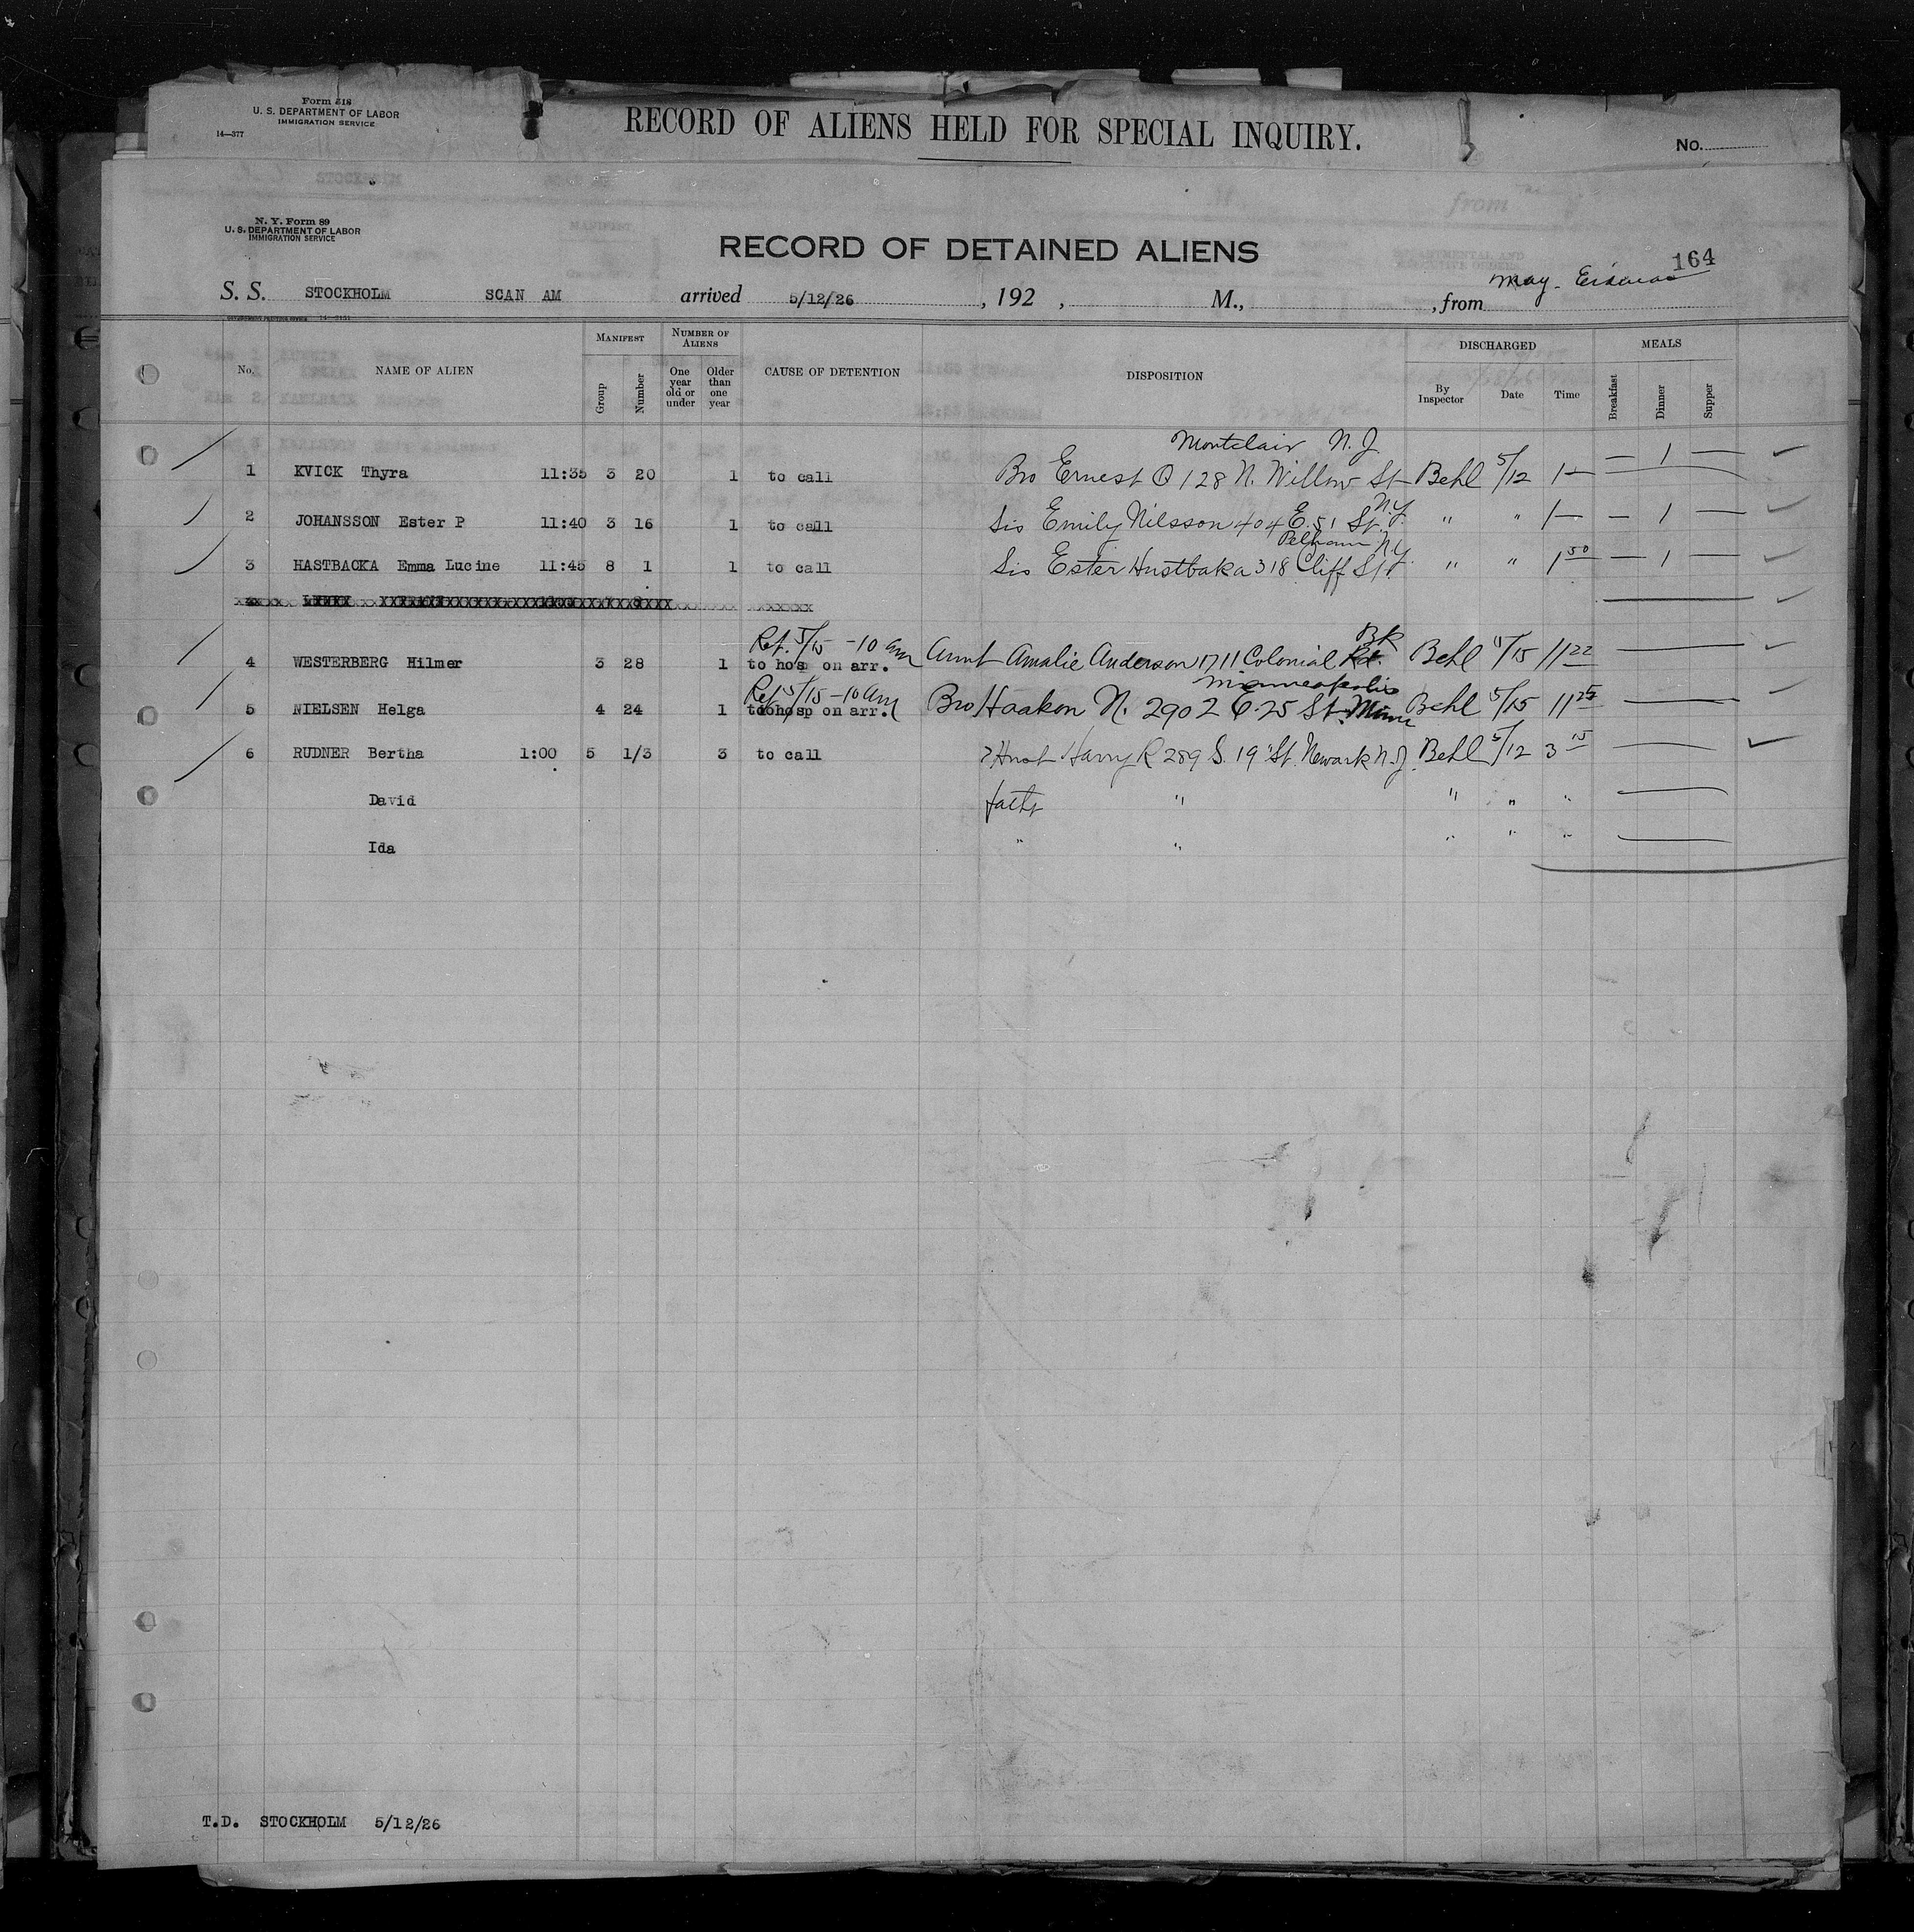 Form 518
U. S. DEPARTMENT OF LABOR
IMMIGRATION SERVICE
14—377
RECORD OF ALIENS HELD FOR SPECIAL INQUIRY.
No.
N. Y. Form 89
U. S. DEPARTMENT OF LABOR
IMMIGRATION SERVICE
RECORD OF DETAINED ALIENS
164
S. S. STOCKHOLM SCAN AM arrived 5/12/26, 192 , M., , from May.
No. NAME OF ALIEN MANIFEST Group Number NUMBER OF ALIENS One year old or under Older than one year CAUSE OF DETENTION DISPOSITION DISCHARGED By Inspector Date Time MEALS Breakfast Dinner Supper
Montclair N. J.
1 KVICK Thyra 11:35 3 20 1 to call Bro Ernest Q 128 N. Willow St Behl 5/12 1— — 1 —
N.Y.
2 JOHANSSON Ester P 11:40 3 16 1 to call Sis Emily Nilsson 404 E. 51 St. " " 1— — 1 —
Pelham N.Y.
3 HASTBACKA Emma Lucine 11:45 8 1 1 to call Sis Ester Hustbaka 318 Cliff St. " " 1 50 — 1 —
Ret. 5/15 - 10 am Bk
4 WESTERBERG Hilmer 3 28 1 to hosp on arr. Aunt Amalie Anderson 1711 Colonial Rd. Behl 5/15 11 22
Ret 5/15 - 10 am Minneapolis
5 NIELSEN Helga 4 24 1 to hosp on arr. Bro Haakon N. 2902 E. 25 St. Minn Behl 5/15 11 25
6 RUDNER Bertha 1:00 5 1/3 3 to call ? Husb Harry R 289 S. 19" St. Newark N. J. Behl 5/12 3 15
David fath " " " "
Ida " " " " "
T.D. STOCKHOLM 5/12/26